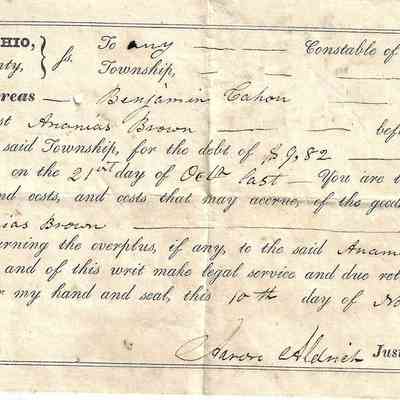 HIO, } ss. To any Constable of
nty, Township,
reas Benjamin Cahou
st Ananias Brown bef
said Township, for the debt of $9,82
on the 21st day of Octr last You are t
nd costs, and costs that may accrue, of the good
ias Brown
urning the overplus, if any, to the said Anani
and of this writ make legal service and due ret
r my hand and seal, this 10th day of No
Aaron Aldrich Just